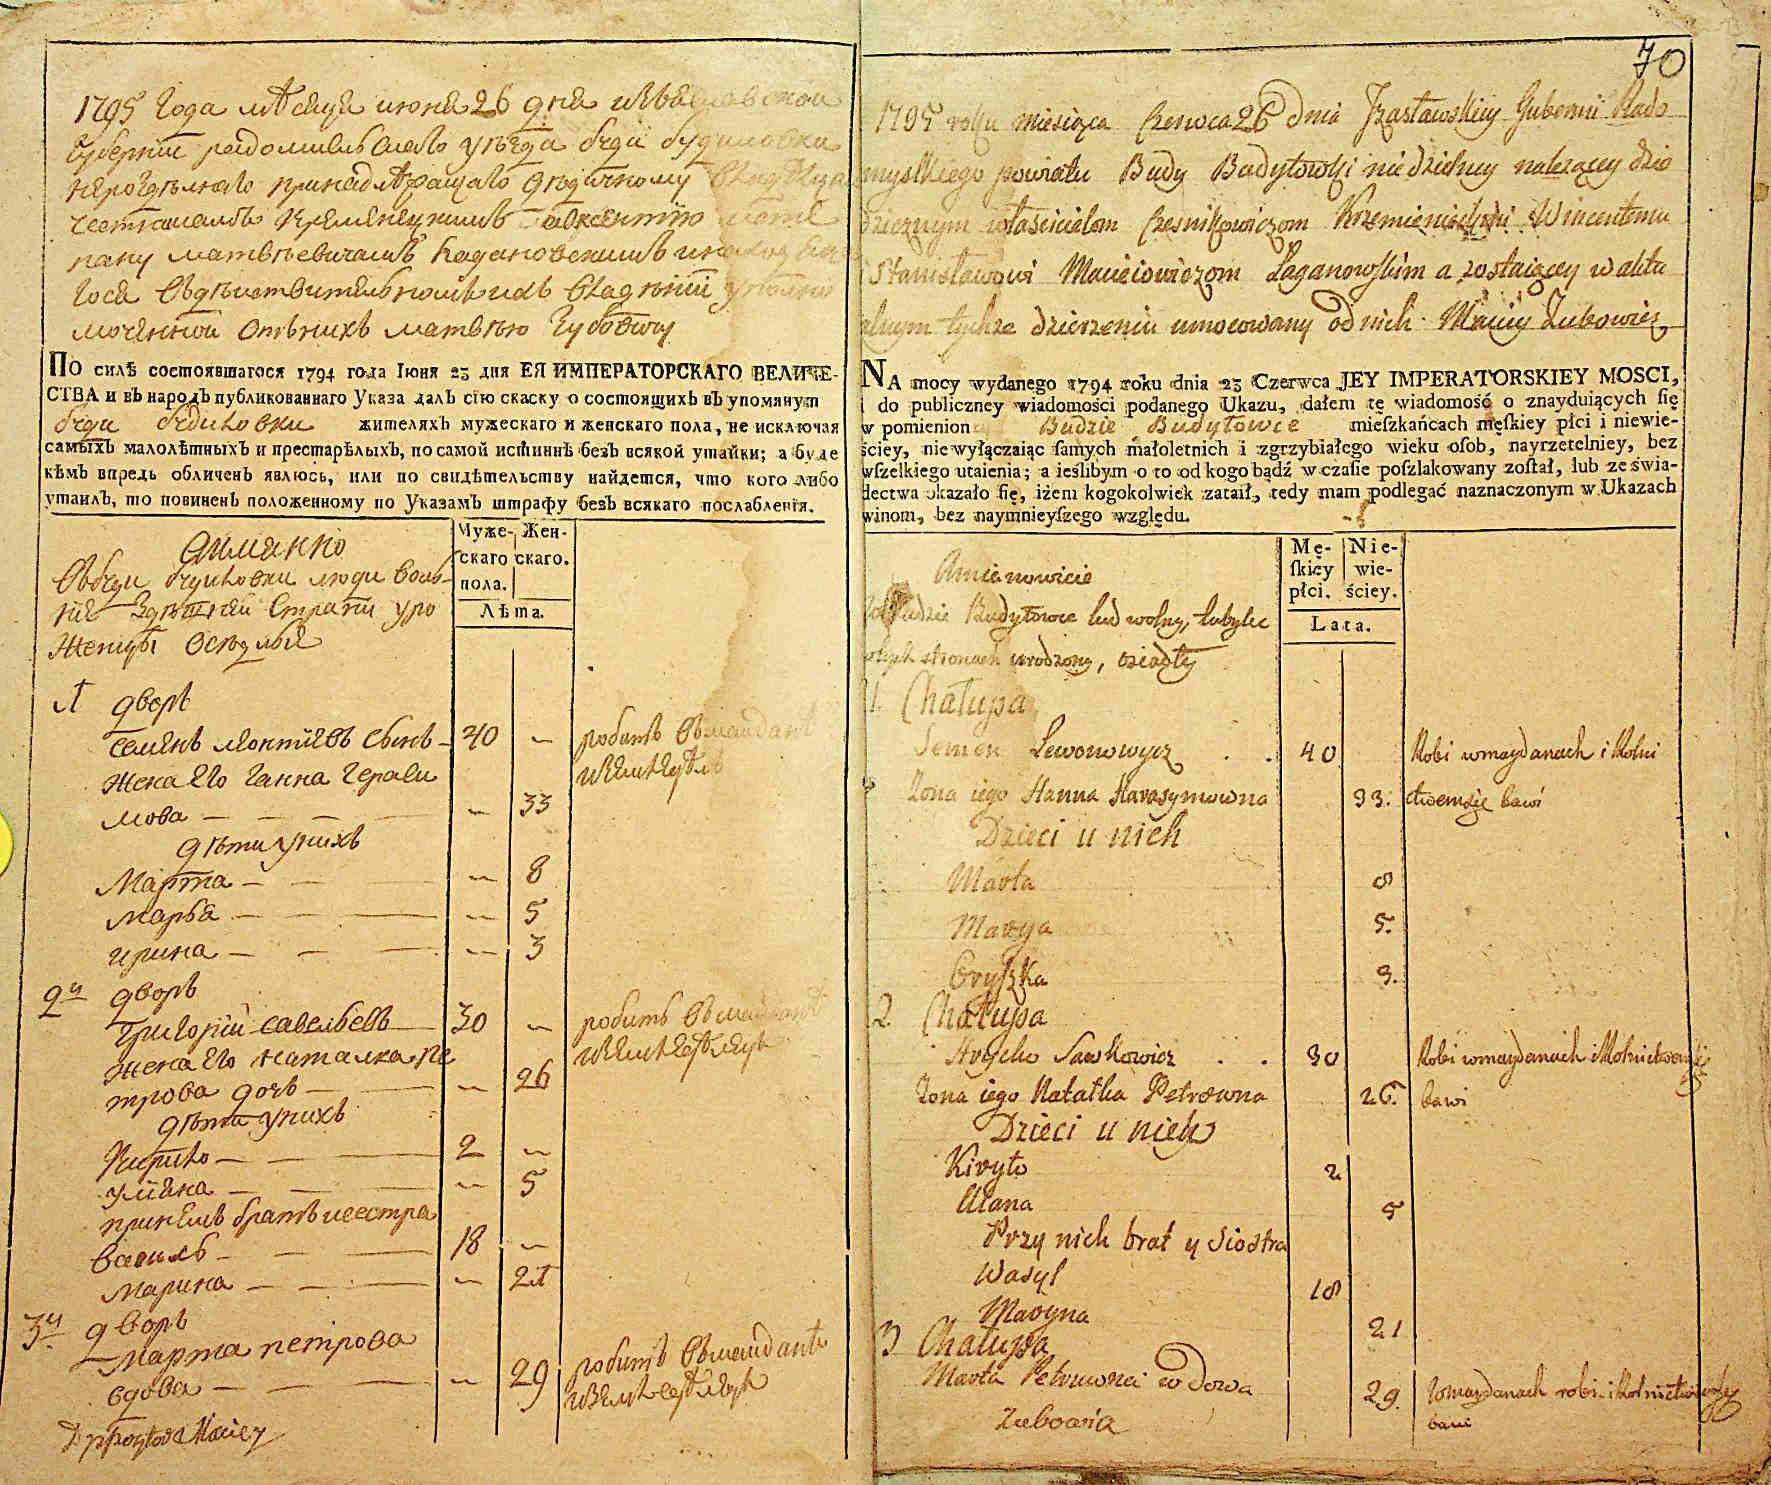 1795 года мѣсяца июня 26 дня изяславской
губернии радомишльскаго уѣзда буди будиловки
нераздѣлнаго принадлежащаго дѣдичному
По силѣ состоявшагося 1794 года Іюня 23 дня ЕЯ ИМПЕРАТОРСКАГО ВЕЛИЧЕ-
СТВА и въ народъ публикованнаго Указа далъ сію скаску о состоящихъ въ упомянут
жителяхъ мужескаго и женскаго пола, не исключая
самыхъ малолѣтныхъ и престарѣлыхъ, по самой истиннѣ безъ всякой утайки; а буде
кѣмъ впредь обличенъ явлюсь, или по свидѣтельству найдется, что кого либо
утаилъ, то повиненъ положенному по Указамъ штрафу безъ всякаго послабленія.
Муже-скаго пола. Жен-скаго.
Лѣта.
а имянно
дворъ
семенъ леонтиевъ сынъ — 40 —
жена его ганна гераси
мова — — 33
дѣти у нихъ
Марта — — 8
марья — — 5
ирина — — 3
2й дворъ
григорий савельевъ 30 —
жена его наталка пе
трова дочь — — 26
дѣти у нихъ
кирило — 2 —
уляна — — 5
при немъ братъ и сестра
василь — 18 —
марина — — 21
3й дворъ
марта петрова
вдова — — 29
Maciey
70
1795 roku miesiąca Czerwca 26 dnia Izasławskiey Gubernii Rado
myslkiego powiatu Budy Budyłowki niedzielney należącey dzie
dzicznym właścicielom Czesnikowiczom Krzemienieckim Wincentemu
Stanisławowi Macieiowiczom Łaganowskim a zostaiącey w aktu
alnym tychże dzierżeniu umocowany od nich Maciey Zubowicz
NA mocy wydanego 1794 roku dnia 23 Czerwca JEY IMPERATORSKIEY MOSCI,
i do publiczney wiadomości podanego Ukazu, dałem tę wiadomość o znayduiących ſię
w pomienion Budzie Budyłowce mieſzkańcach męſkiey płci i niewie-
ściey, niewyłączaiąc ſamych małoletnich i zgrzybiałego wieku oſob, nayrzetelniey, bez
wſzelkiego utaienia; a ieſlibym o to od kogo bądź w czaſie poſzlakowany został, lub ze świa-
dectwa okazało ſię, iżem kogokolwiek zataił, tedy mam podlegać naznaczonym w Ukazach
winom, bez naymnieyſzego względu.
Mę-ſkiey płci. Nie-wie-ściey.
Lata.
Amianowicie
Budzie Budyłowce lud wolny, tubylec
w tych stronach urodzony, osiadły
1. Chałupa
Semen Lewonowycz . . 40 Robi w maydanach i Rolni
Żona iego Hanna Harasymowna 33. ctwem się bawi
Dzieci u nich
Marta 8
Marya 5.
Oryszka 3.
2 Chałupa
Hrycko Sawkowicz . . 30 Robi w maydanach i Rolnictwem się
Żona iego Natałka Petrowna 26. bawi
Dzieci u nich
Kiryło 2
Ulana 5
Przy nich brat y siostra
Wasyl 18
Maryna 21
3 Chałupa
Marta Petruwna wdowa 29. w maydanach robi i Rolnictwem się
bawi